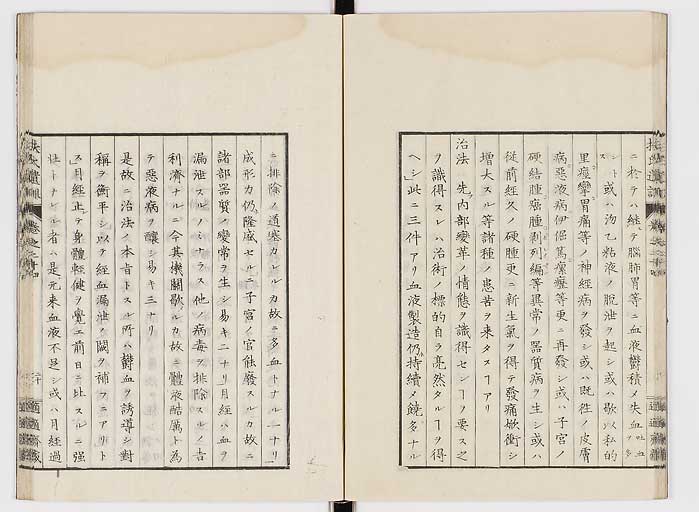 ニ於テハ継テ腦肺胃等ニ血液欝積メ失血吐血ヲ多
シト或ハ沕乙粘液ノ脱泄ヲ起シ或ハ歇以私的
里瘈攣胃痛等ノ神經病ヲ發シ或ハ既徃ノ皮膚
病惡液病伊倔篤瘰癧等更ニ再發シ或ハ子宮ノ
硬結腫瘍腫剥列編等異常ノ器質病ヲ生シ或ハ
従前經久ノ硬腫更ニ新生氣ヲ得テ發痛焮衝シ
増大スル等諸種ノ患苦ヲ来タスヿアリ
治法 先内部變革ノ情態ヲ識得センヿヲ要ス之
ヲ識得スレハ治術ノ標的自ラ亮然タルヿヲ得
ヘシ此ニ三件アリ血液製造仍持續メ饒多ナル
ニ排除ノ道塞カレルカ故ニ多血トナル一ナリ
成形力仍隆盛セルニ子宮ノ官能廢スルカ故ニ
諸部器質ノ變常ヲ生シ易キ二ナリ月經ハ血ヲ
漏泄スルノミナラス他ノ病毒ヲ排除スルノ吉
利濟ナルニ今其機關歇ルカ故ニ體液酷厲ト為
テ惡液病ヲ釀シ易キ三ナリ
是故ニ治法ノ本旨トスル所ハ欝血ヲ誘導シ對
稱ヲ衡平シ以テ經血漏泄ノ闕ヲ補フニアリト
ス月經止テ身體輕健ヲ覺エ前日ニ比スルニ強
壮トナレル者ハ是元来血液不足シ或ハ月經過
扶氏遺訓